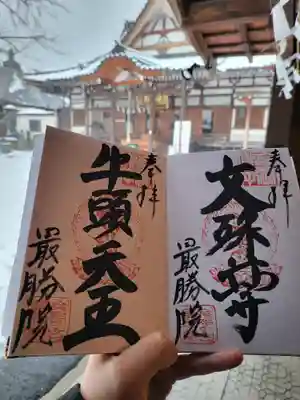 奉拝
文殊尊
最勝院
奉拝
牛頭天王
最勝院